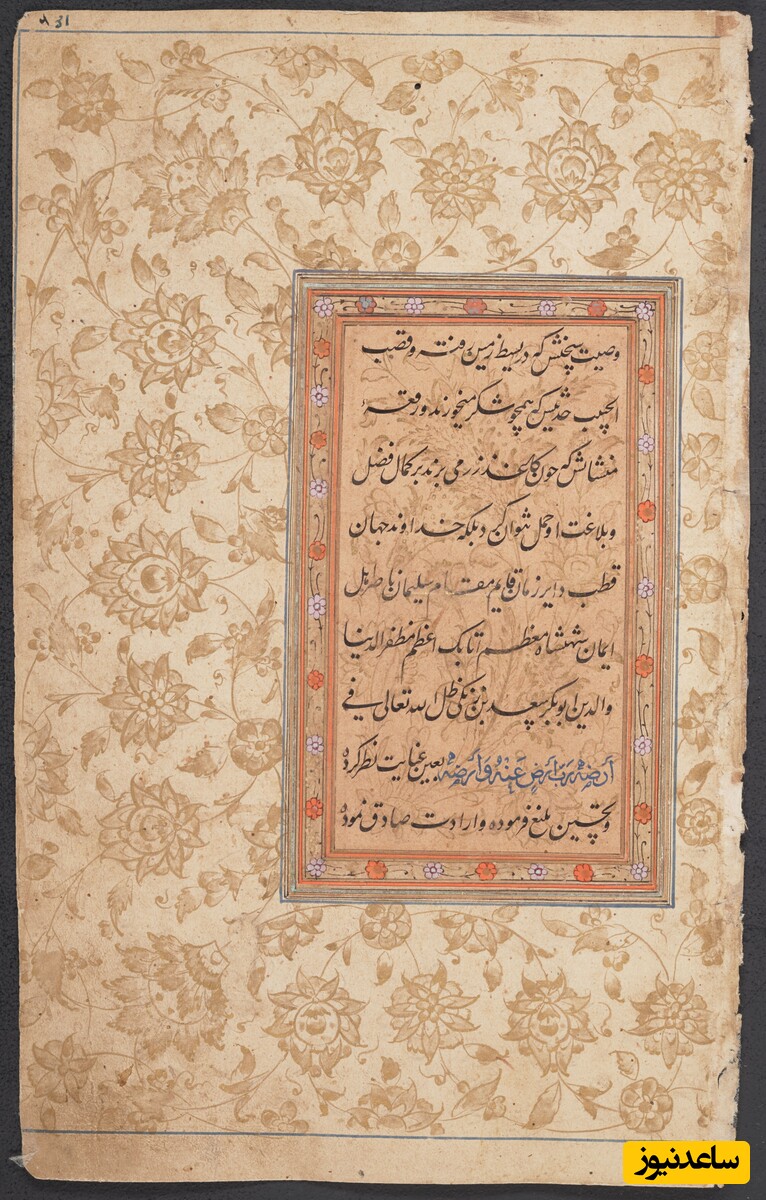 وصیت سخنش که در بسیط زمین رفته و قصب
الجیب حدیثش که همچو شکر میخورند و رقعهٔ
منشاتش که چون کاغذ زر می برند بر کمال فضل
و بلاغت او حمل نتوان کرد بلکه خداوند جهان
قطب دایره زمان قایم مقام سلیمان ناصر اهل
ایمان شهنشاه معظم اتابک اعظم مظفر الدنیا
والدین ابوبکر سعد بن زنگی ظل الله تعالی فی
اَرضه رَبِّ ارضِ عَنهُ وَ اَرضِه بعین عنایت نظر کرده
و تحسین بلیغ فرموده و ارادت صادق نموده
ساعدنیوز